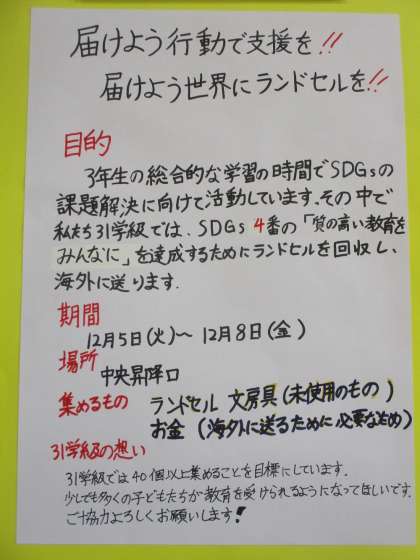 届けよう行動で支援を!!
届けよう世界にランドセルを!!
目的
3年生の総合的な学習の時間でSDGsの
課題解決に向けて活動しています。その中で
私たち31学級では、SDGs 4番の「質の高い教育を
みんなに」を達成するためにランドセルを回収し、
海外に送ります。
期間
12月5日(火)～12月8日(金)
場所
中央昇降口
集めるもの ランドセル 文房具(未使用のもの)
お金(海外に送るために必要なため)
31学級の想い
31学級では40個以上集めることを目標にしています。
少しでも多くの子どもたちが教育を受けられるようになってほしいです。
ご協力よろしくお願いします!